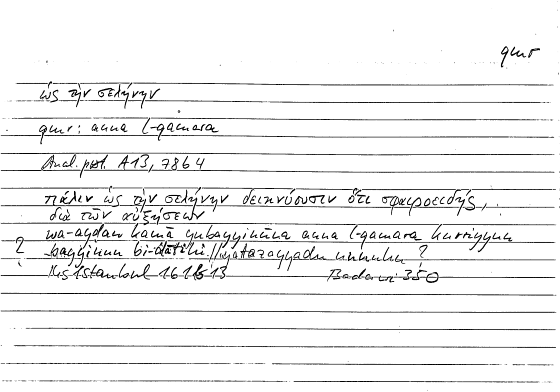 qmr
ὡς τὴν σελήνην
qmr: anna l-qamara
Anal. post. A13, 78b4
πάλιν ὡς τὴν σελήνην δεικνύουσιν ὅτι σφαιροειδής,
διὰ τῶν αὐξήσεων
wa-ayḍan kamā yubayyinūna anna l-qamara kurriyyun
? bayyinun bi-ḏātihi // yatazayyadu ?
Hs Istanbul 161b13 Badawi 350